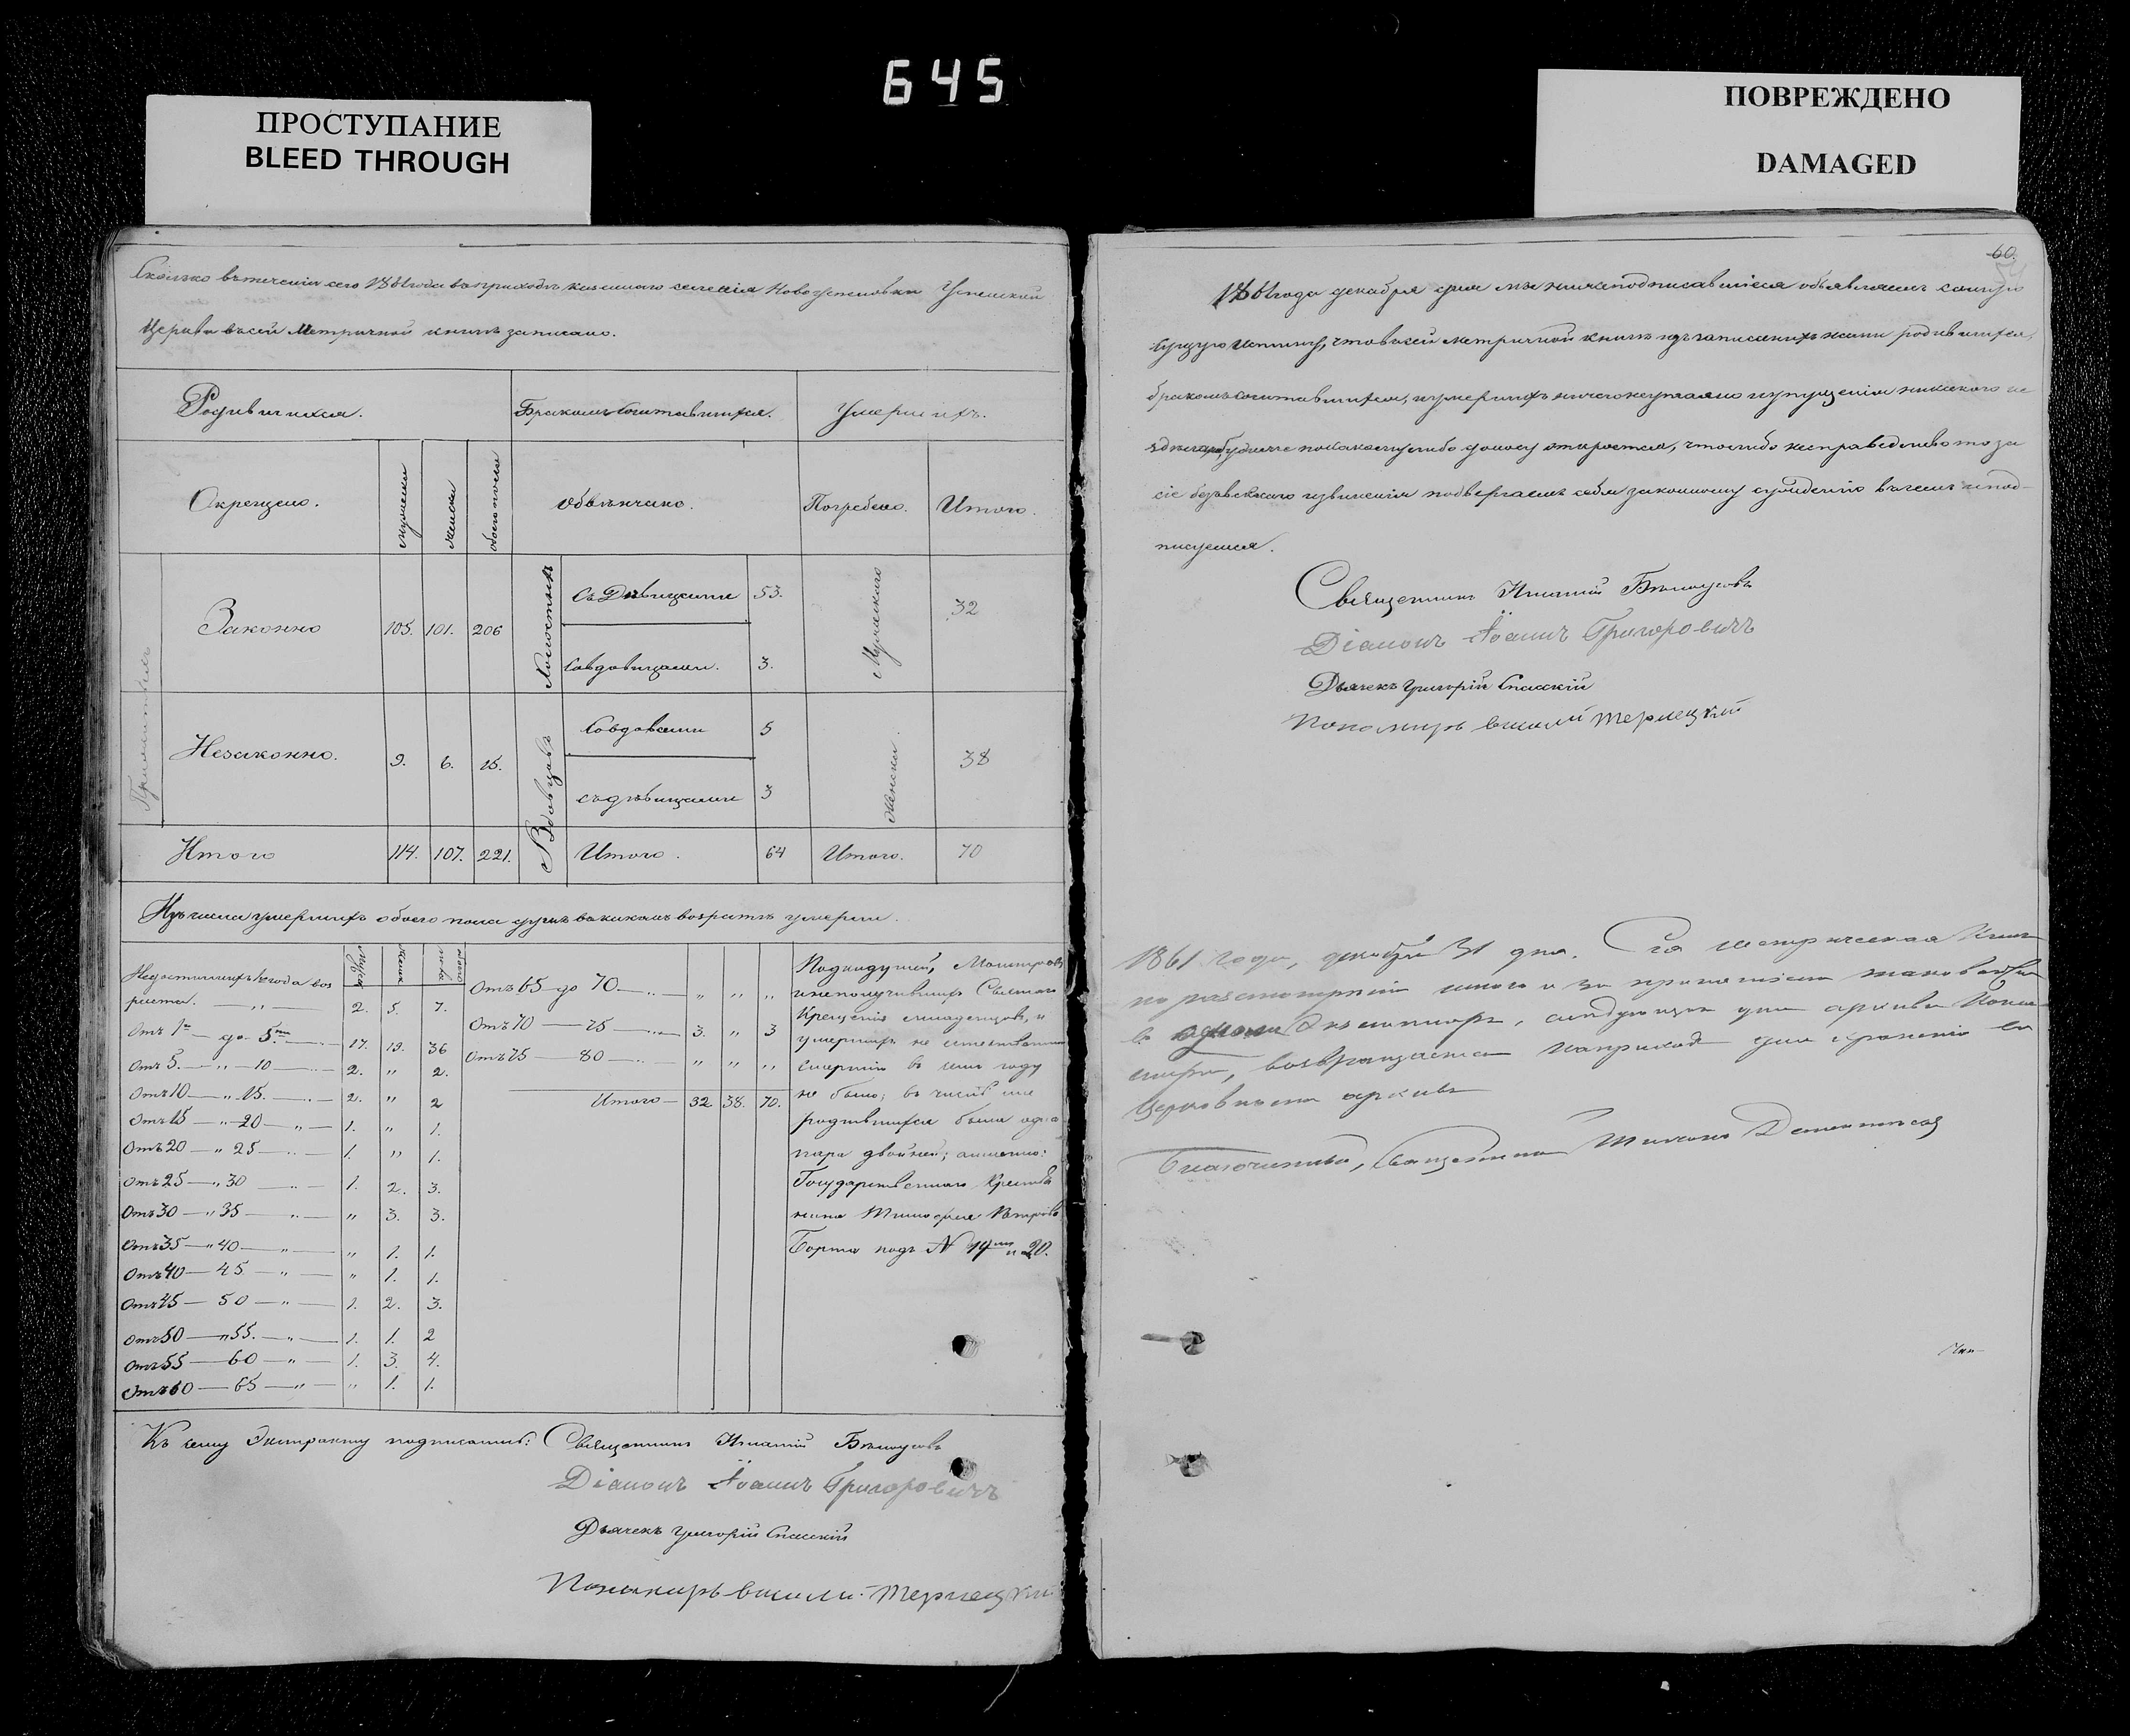 645
ПРОСТУПАНИЕ
BLEED THROUGH
ПОВРЕЖДЕНО
DAMAGED
Сколько въ теченіи сего 1861 года въ приходѣ казеннаго селенія Новоуспеновки Успенской
Церкви въ сей Метричной книгѣ записано.
Родившихся. Бракомъ Сочитавшихся. Умершихъ.
Окрещено. мужеска женска обоего пола обвѣнчано. Погребено. Итого.
Законно 105. 101. 206 Холостыхъ Съ Дѣвицами 53. Мужескаго 32
Совдовицами. 3.
Незаконно. 9. 6. 15. Вдовцовъ Совдовами 5 Женска. 38
съ дѣвицами 3
Итого 114. 107. 221. Итого. 64 Итого. 70
Изъ числа умершихъ обоего пола душъ въ какомъ возрастѣ умерли.
Недостигшихъ 1го года воз
раста. 2. 5. 7.
Отъ 1го до 5ти 17. 19. 36
Отъ 5. — „ — 10 2. „ 2.
Отъ 10 — „ 15. 2. „ 2
Отъ 15 — „ 20 — „ 1. „ 1.
Отъ 20 — „ 25 1. „ 1.
Отъ 25 — „ 30 — „ 1. 2. 3.
Отъ 30 — „ 35 — „ „ 3. 3.
Отъ 35 — „ 40 — „ „ 1. 1.
Отъ 40 — 45 — „ „ 1. 1.
Отъ 45 — 50 — „ 1. 2. 3.
Отъ 50 — „ 55. — „ 1. 1. 2
Отъ 55 — 60 — „ 1. 3. 4.
Отъ 60 — 65 — „ „ 1. 1.
Отъ 65 до 70 — „ „ „ „
Отъ 70 — 75 — „ 3. „ 3
Отъ 75 — 80 — „ „ „ „
Итого — 32 38. 70.
Подкидушей,
и неполучившихъ Святаго
Крещенія младенцовъ, и
умершихъ не естественною
смертію въ семъ году
не было; въ числѣ же
родившихся была одна
пара двойней; именно:
Государственнаго Крестья
нина Тимофея Петрова
Борта подъ N 19мъ и 20.
Къ сему Экстракту подписались: Священникъ Игнатій Бѣлоусовъ
Діаконъ Іоаннъ Григоровичъ
Дьячекъ Григорій Спасскій
Понамарь Василий Тернецкий
60.
1861 года декабря дня мы нижеподписавшіеся объявляемъ самую
сущую истину, что въ сей метричной книгѣ изъ записанныхъ нами родившихся,
бракомъ сочитавшихся, и умершихъ ничего неутаено и упущенія никакого не
буде же по какому либо доносу откроется, что либо несправедливо то за
сіе безъ всякаго извиненія подвергаемъ себя законному сужденію въ чемъ и под-
писуемся.
Священникъ Игнатій Бѣлоусовъ
Діаконъ Іоаннъ Григоровичъ
Дьячекъ Григорій Спасскій
Пономарь Василий Тернецкий
1861 года, декабря 31 дня. Сія метрическая Книга
по разсмотреніи мною и за принятіем таковой же
в одном Экземпляре, следующем для архива
возвращается на приход для хранения в
Церковном архиве
Благочинный, Священник